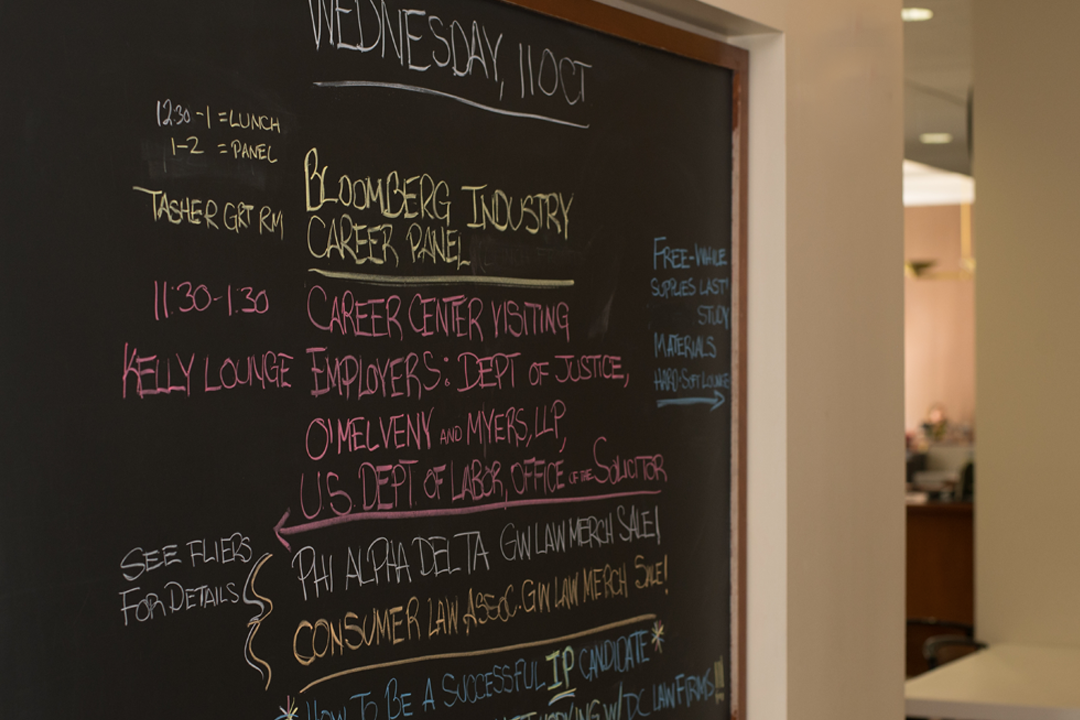 WEDNESDAY, 11 OCT
12:30-1 = LUNCH
1-2 = PANEL
TASHER GRT RM
BLOOMBERG INDUSTRY
CAREER PANEL
11:30-1:30
KELLY LOUNGE
CAREER CENTER VISITING
EMPLOYERS: DEPT OF JUSTICE,
O'MELVENY AND MYERS, LLP,
U.S. DEPT. OF LABOR, OFFICE OF THE SOLICITOR
FREE-WHILE
SUPPLIES LAST!
STUDY
MATERIALS
HARD-SOFT LOUNGE
SEE FLIERS
FOR DETAILS
PHI ALPHA DELTA GW LAW MERCH SALE!
CONSUMER LAW ASSOC. GW LAW MERCH SALE!
*HOW TO BE A SUCCESSFUL IP CANDIDATE*
W/ DC LAW FIRMS!!!